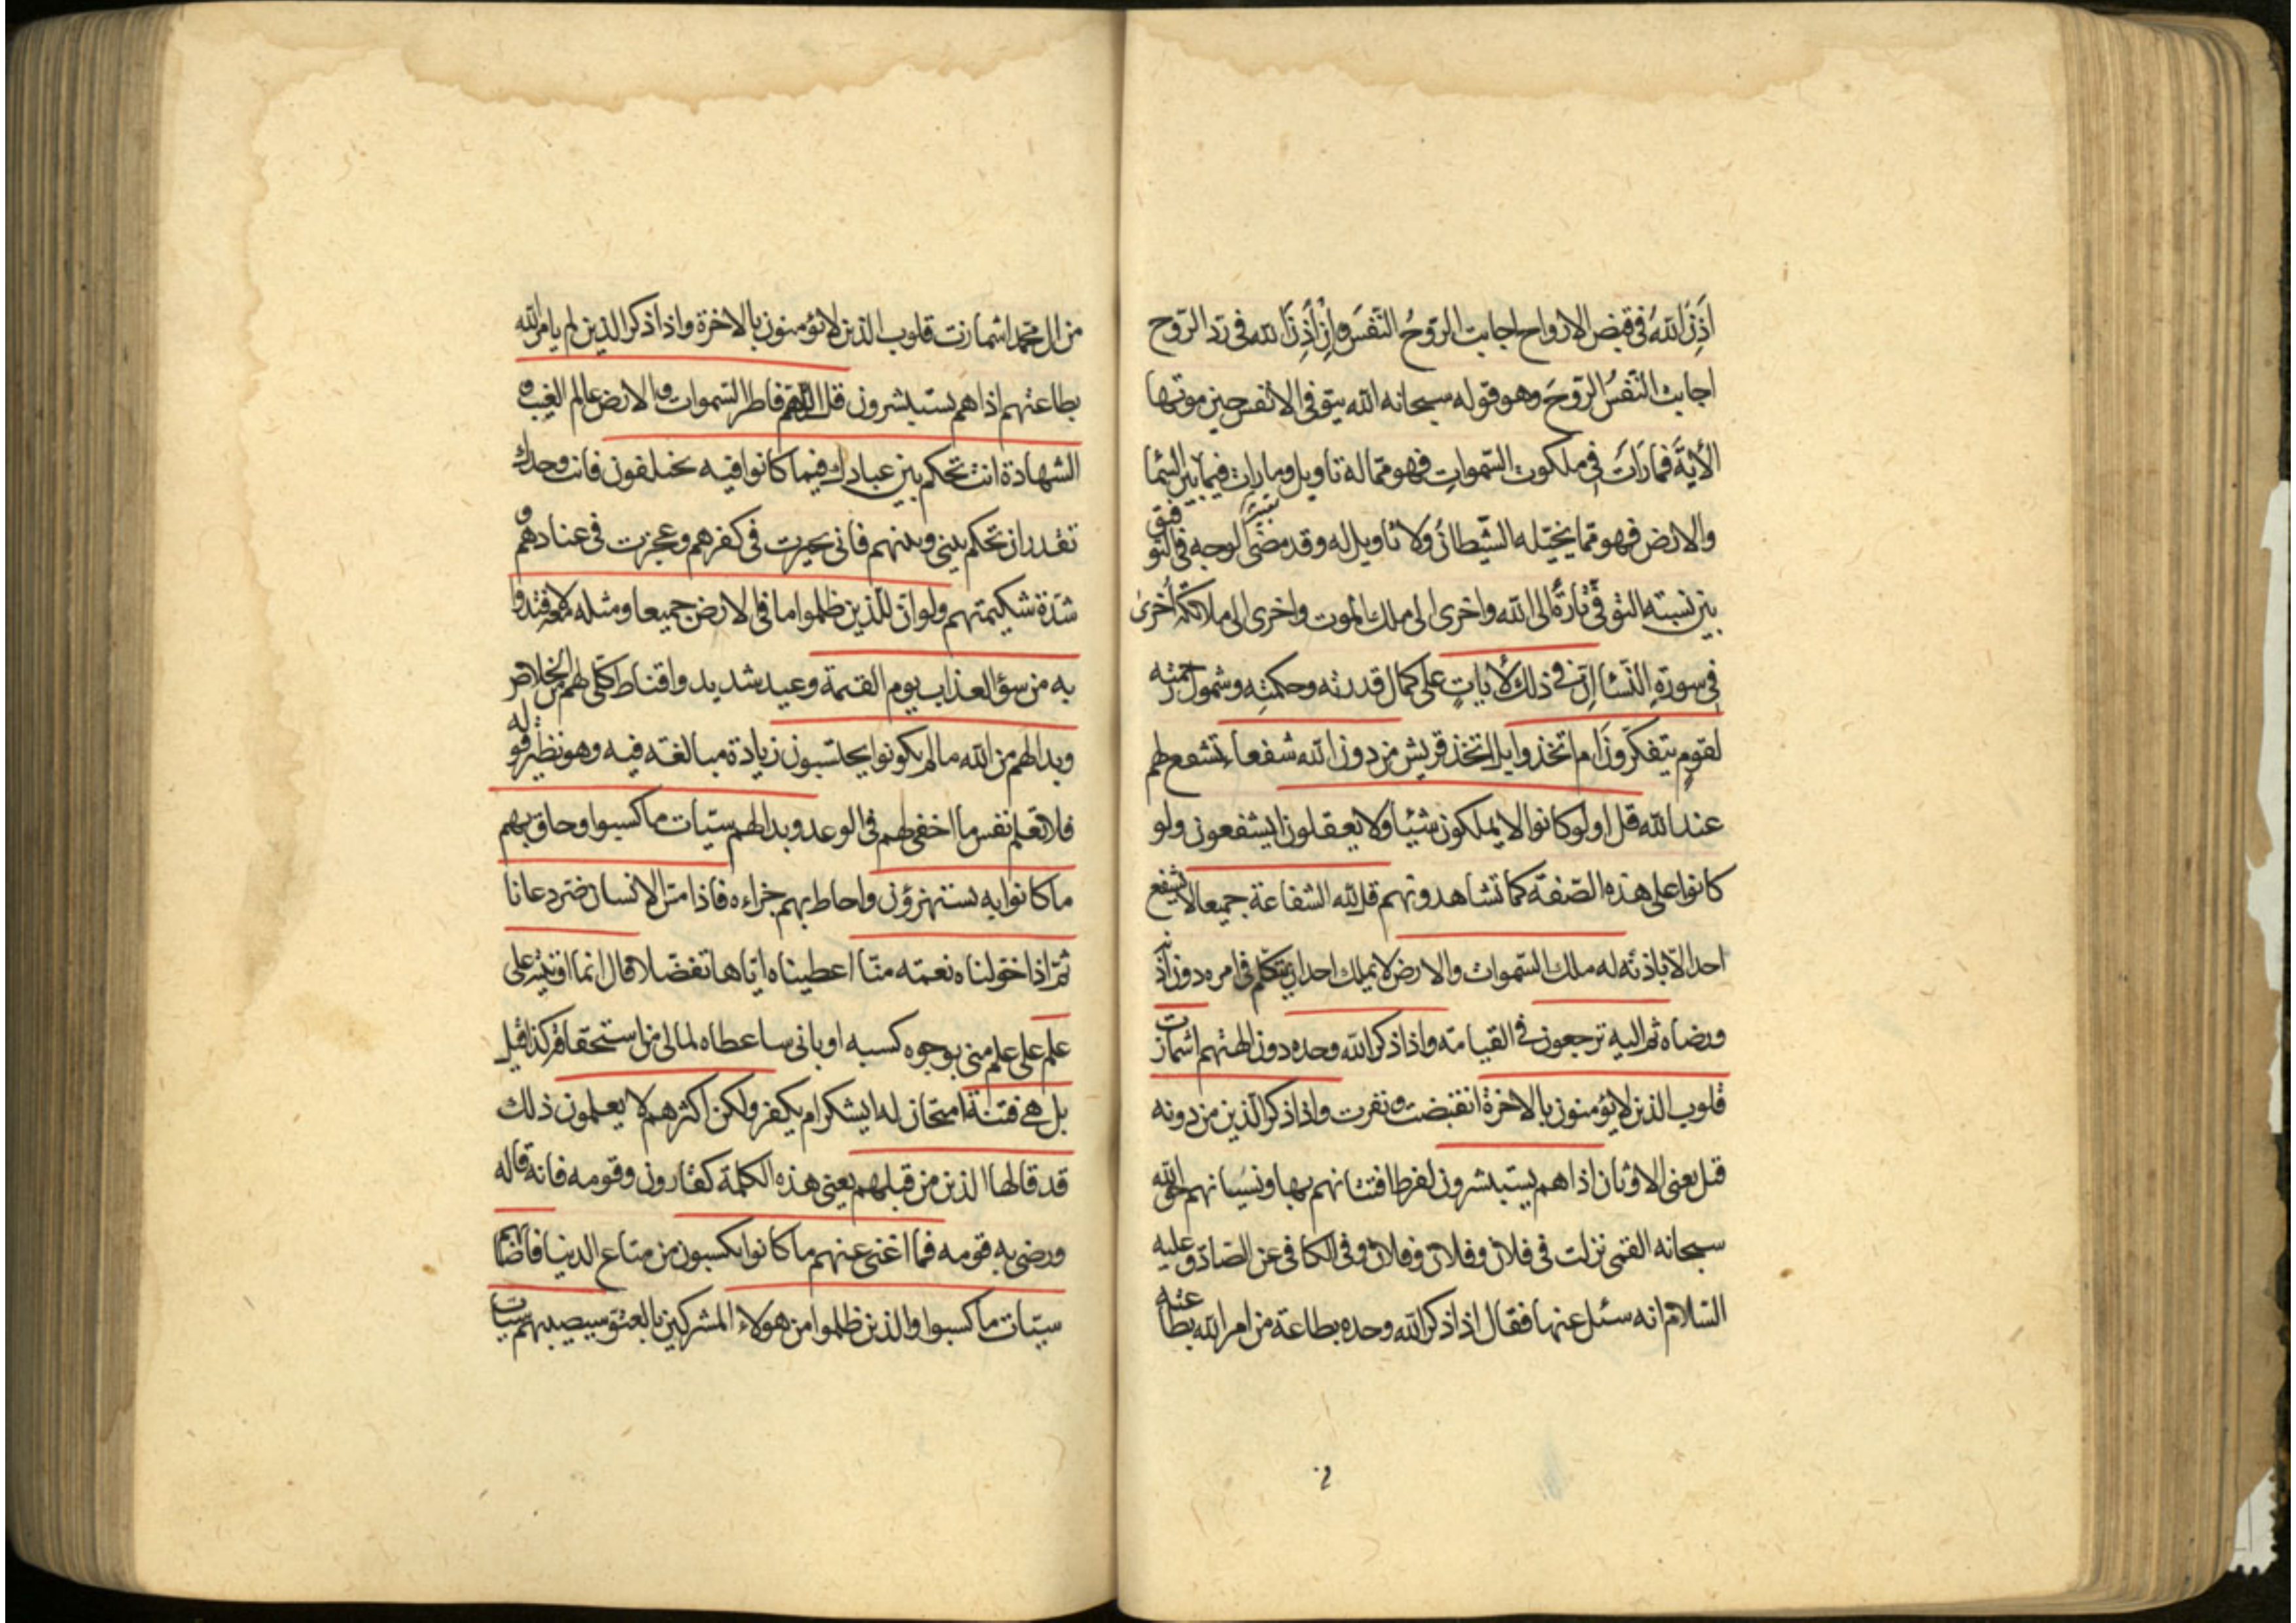 اَذِنَ اللهُ في قبض الارواح اجابت الرّوحُ النّفسَ وإنْ اَذِنَ الله في ردّ الرّوح
اجابت النّفسُ الرّوحَ وهو قوله سبحانه الله يتوفى الانفس حين موتها
الأيةَ فما رَاتَ في ملكوت السّموات فهو مما له تاويل وما رات فيما بين السّما
والارض فهو مما يخيّله الشّيطانُ ولا تاويل له وقد مضى لوجه في التو فيق
بين نسبته التوفّي تارةً الى الله واخرى الى ملك الموت واخرى الى ملائكة اُخرىٰ
في سورة النّساء إنّ في ذلك لأياتٍ على كمال قدرته وحكمتِه وشمول رحمته
لقومٍ يتفكّرونَ ام اتخذوا بل اتّخذ قريش من دون الله شفعاء تشفع لهم
عند الله قل اولو كانوا لا يملكون شيئًا ولا يعقلون ايشفعون ولو
كانوا على هذه الصّفة كما تشاهدونهم قل لله الشفاعة جميعا لا يشفع
احد الّا باذنه له ملك السّموات والارض لا يملك احد ان يتكلّم في امره دون اذنه
ورضاه ثم اليه ترجعون في القيامة واذا ذكر الله وحده دون الهتهم اشمازت
قلوب الذين لا يؤمنون بالاخرة انقبضت ونفرت واذا ذكر الّذين من دونه
قيل يعني الاوثان اذا هم يستبشرون لفرط افتتانهم بها ونسيانهم حق الله
سبحانه القمى نزلت في فلان وفلان وفلان وفى الكافى عن الصّادق عليه
السّلام انه سئل عنها فقال اذا ذكر الله وحده بطاعة من امر الله بطاعته
من ال محمد اشمازت قلوب الذين لا يؤمنون بالاخرة واذا ذكر الذين لم يامر الله
بطاعتهم اذا هم يستبشرون قل اللّهم فاطر السّموات والارض عالم الغيب و
الشهادة انت تحكم بين عبادك فيما كانوا فيه يختلفون فانت وحدك
تقدر ان تحكم بيني وبينهم فانى تحيرت في كفرهم وعجزت في عنادهم و
شدّة شكيمتهم ولو انّ للّذين ظلموا ما فى الارض جميعا ومثله معه لافتدوا
به من سؤ العذاب يوم القيمة وعيد شديد واقناط كلّى لهم من الخلاص
وبدا لهم من الله ما لم يكونوا يحتسبون زيادة مبالغته فيه وهو نظير قوله
فلا تعلم نفس ما اخفى لهم فى الوعد وبدا لهم سيّات ما كسبوا وحاق بهم
ما كانوا به يستهزؤن واحاط بهم جزاءه فاذا مسّ الانسان ضر دعانا
ثمّ اذا خوّلناه نعمته منّا اعطيناه ايّاها تفضّلا قال انما اوتيته على
علم على علم منى بوجوه كسبه او بانى ساعطاه لما لى من استحقاقه كذا قيل
بل هى فتنة امتحان له ايشكر ام يكفر ولكن اكثرهم لا يعلمون ذلك
قد قالها الذين من قبلهم يعنى هذه الكلمة كقارون وقومه فانه قاله
ورضى به قومه فما اغنى عنهم ما كانوا يكسبون من متاع الدنيا فاصابهم
سيّات ما كسبوا والذين ظلموا من هولاء المشركين بالعتو سيصيبهم سيّات